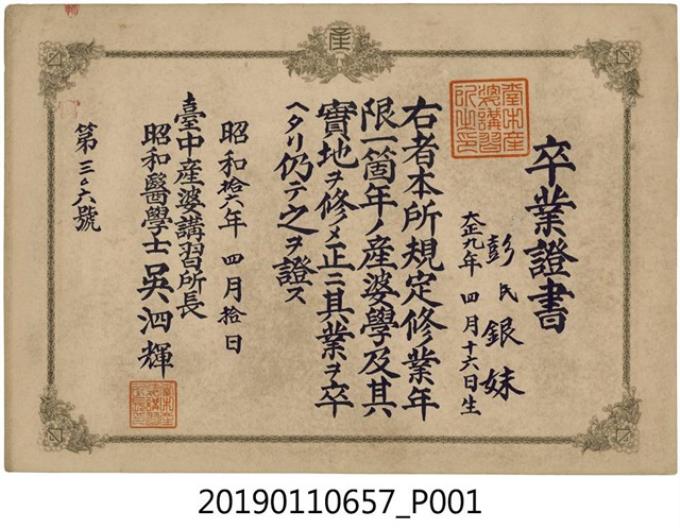 産
卒業證書
彭氏銀妹
大正九年 四月十六日生
右者本所規定修業年
限一箇年ノ産婆學及其
實地ヲ修メ正ニ其業ヲ卒
ヘタリ仍テ之ヲ證ス
昭和拾六年 四月拾日
臺中産婆講習所長
昭和醫學士 吳泗輝
第三〇六號
臺中産
婆講習
所之印
20190110657_P001